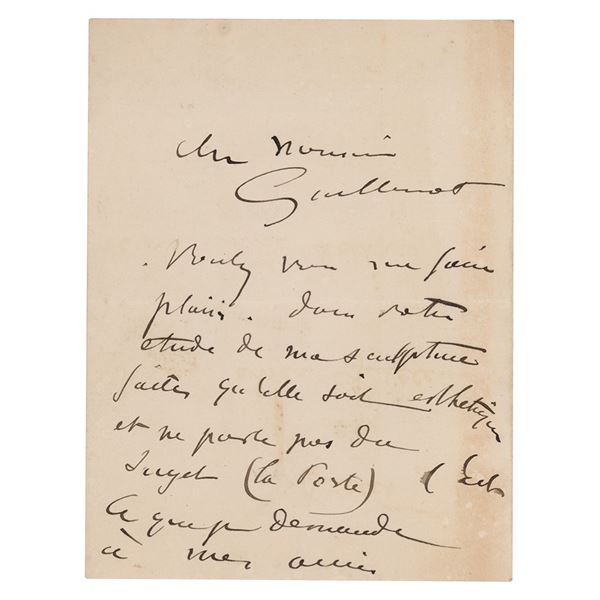 cher Monsieur
Guillemot
. Voulez vous me faire
plaisir. dans votre
etude de ma sculpture
faites qu'elle soit esthetique
et ne parle pas du
sujet (la Porte) (C'est
ce que je demande
à mes amis